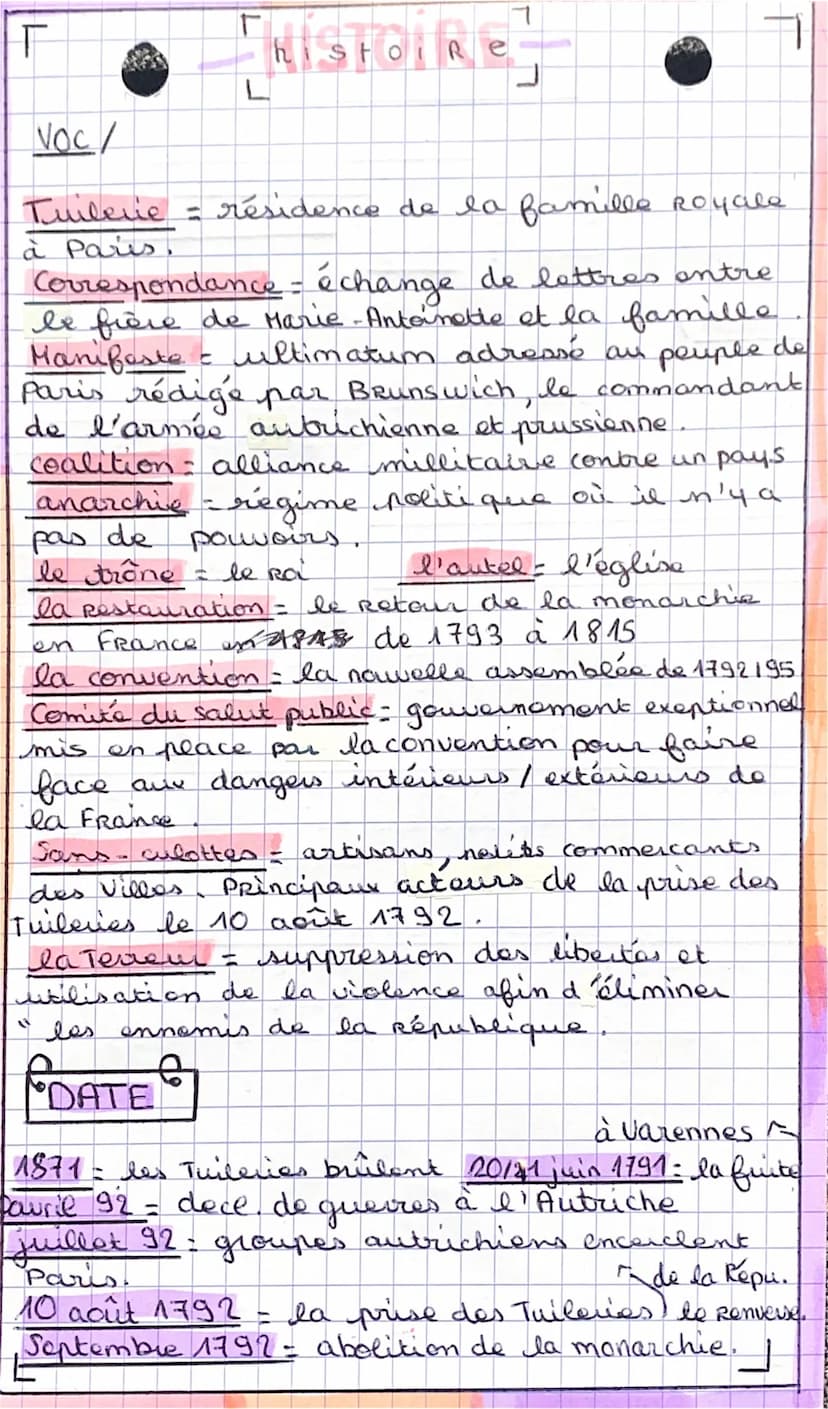 HISTOIRE
histoire
VOC/
Tuilerie = résidence de la famille Royale
à Paris.
Correspondance = échange de lettres entre
le frère de Marie-Antoinette et la famille.
Manifeste = ultimatum adressé au peuple de
Paris rédigé par Brunswich, le commandant
de l'armée autrichienne et prussienne.
coalition = alliance millitaire contre un pays
anarchie = régime politique où il n'y a
pas de pouvoirs.
le trône = le Roi l'autel = l'église
la Restauration = le retour de la monarchie
en France de 1793 à 1815
la convention = la nouvelle assemblée de 1792/95
Comité du salut public = gouvernement exeptionnel
mis en place par la convention pour faire
face aux dangers intérieurs / extérieurs de
la France.
Sans-culottes = artisans, petits commercants
des villes. Principaux acteurs de la prise des
Tuileries le 10 août 1792.
la Terreur = suppression des libertés et
utilisation de la violence afin d'éliminer
" les ennemis de la République.
DATE
à Varennes
1871 = les Tuileries brûlent 20/21 juin 1791 = la fuite
avril 92 = decl. de guerres à l'Autriche
juillet 92 = groupes autrichiens encerclent
Paris.
de la Répu.
10 août 1792 = la prise des Tuileries) le renverse.
Septembre 1792 = abolition de la monarchie.